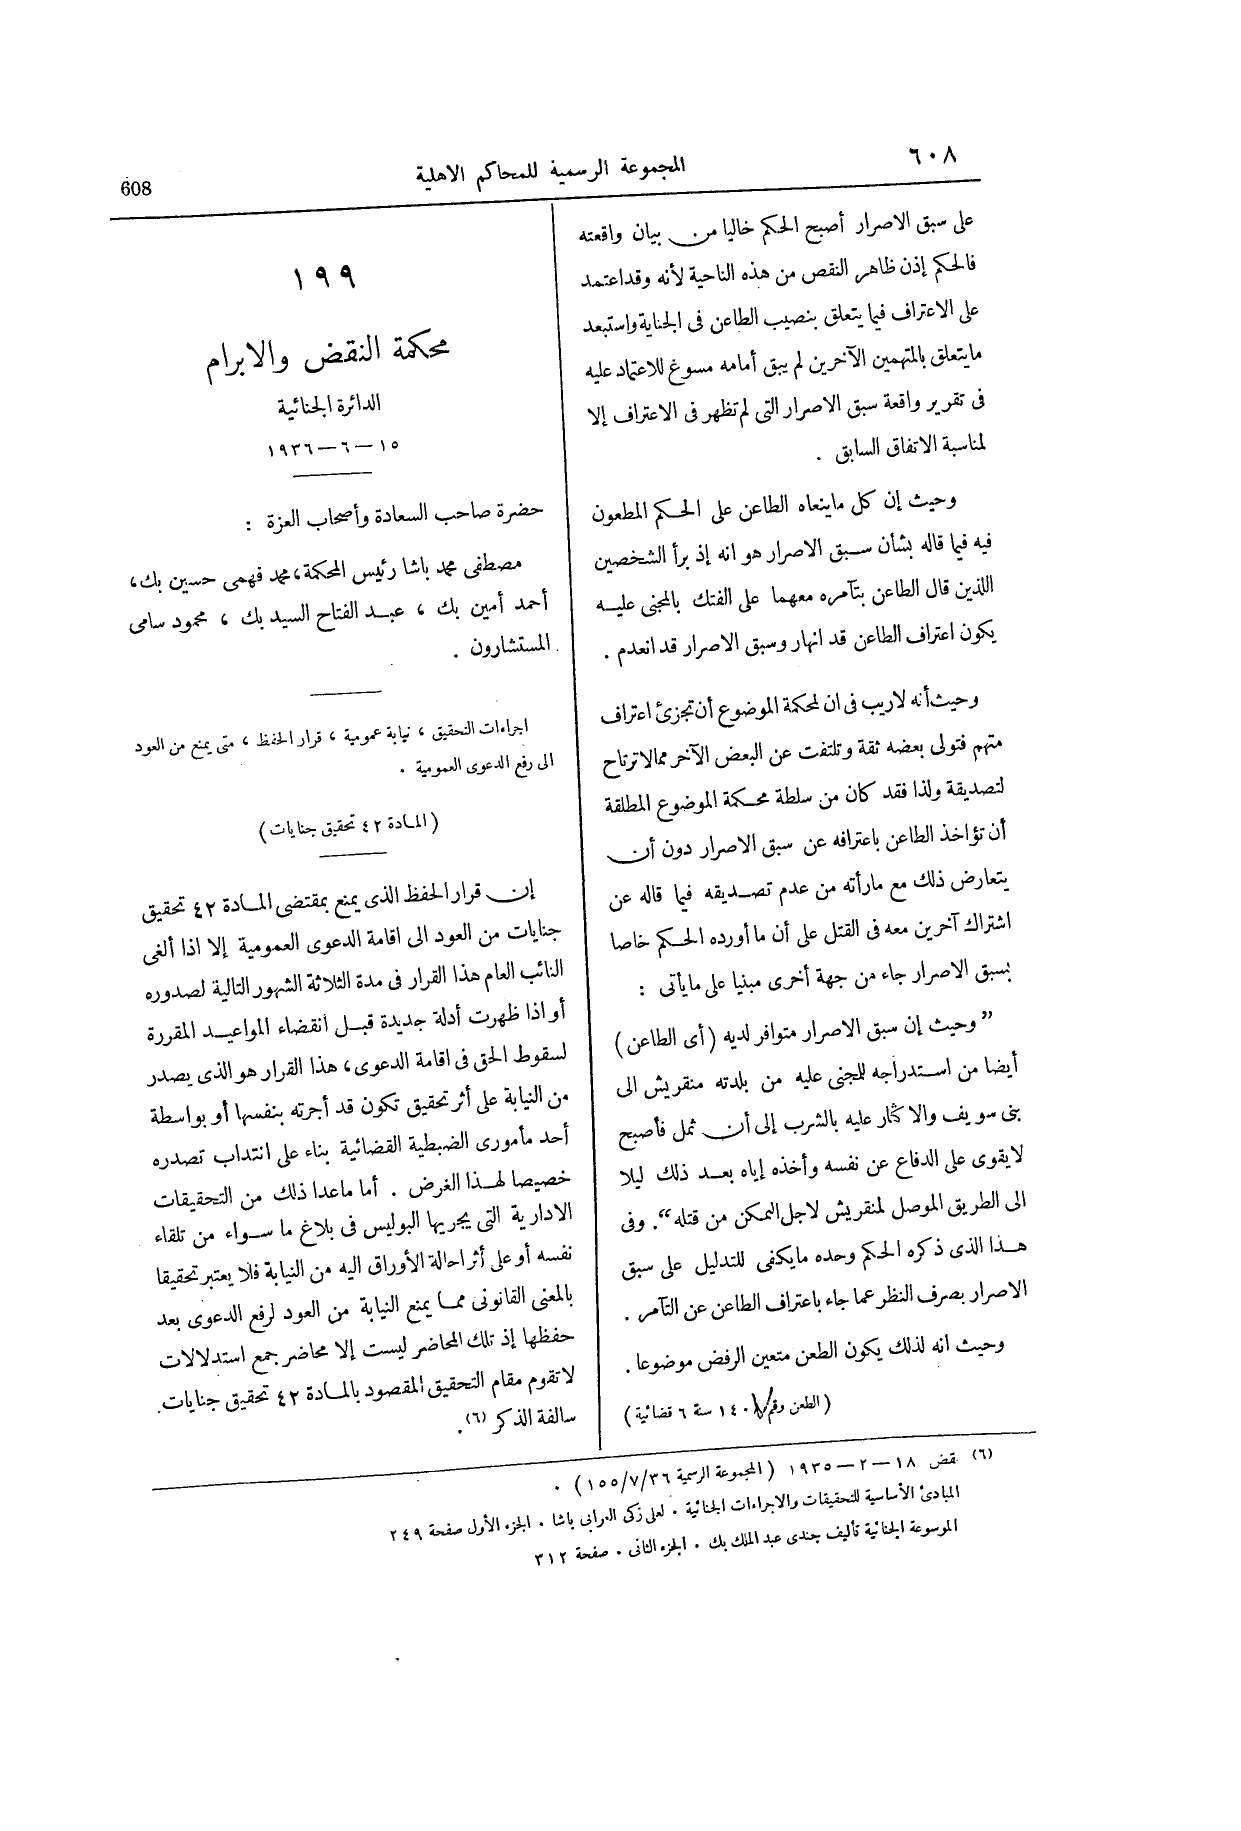 ٦٠٨
المجموعة الرسمية للمحاكم الاهلية
608
على سبق الاصرار أصبح الحكم خاليا من بيان واقعته
فالحكم إذن ظاهر النقص من هذه الناحية لأنه وقد اعتمد
على الاعتراف فيما يتعلق بنصيب الطاعن فى الجناية واستبعد
مايتعلق بالمتهمين الآخرين لم يبق أمامه مسوغ للاعتماد عليه
فى تقرير واقعة سبق الاصرار التى لم تظهر فى الاعتراف إلا
لمناسبة الاتفاق السابق .
وحيث إن كل ماينعاه الطاعن على الحكم المطعون
فيه فيما قاله بشأن سبق الاصرار هو انه إذ برأ الشخصين
اللذين قال الطاعن بتآمره معهما على الفتك بالمجنى عليه
يكون اعتراف الطاعن قد انهار وسبق الاصرار قد انعدم .
وحيث أنه لاريب فى ان لمحكمة الموضوع أن تجزئ اعتراف
متهم فتولى بعضه ثقة وتلتفت عن البعض الآخر ممالاترتاح
لتصديقة ولذا فقد كان من سلطة محكمة الموضوع المطلقة
أن تؤاخذ الطاعن باعترافه عن سبق الاصرار دون أن
يتعارض ذلك مع مارأته من عدم تصديقه فيما قاله عن
اشتراك آخرين معه فى القتل على أن ما أورده الحكم خاصا
بسبق الاصرار جاء من جهة أخرى مبنيا على مايأتى :
”وحيث إن سبق الاصرار متوافر لديه (أى الطاعن)
أيضا من استدراجه للمجنى عليه من بلدته منقريش الى
بنى سويف والاكثار عليه بالشرب إلى أن ثمل فأصبح
لايقوى على الدفاع عن نفسه وأخذه إياه بعد ذلك ليلا
الى الطريق الموصل لمنقريش لاجل التمكن من قتله“. وفى
هذا الذى ذكره الحكم وحده مايكفى للتدليل على سبق
الاصرار بصرف النظر عما جاء باعتراف الطاعن عن التآمر .
وحيث انه لذلك يكون الطعن متعين الرفض موضوعا .
(الطعن رقم ١٤٠٨ سنة ٦ قضائية)
١٩٩
محكمة النقض والابرام
الدائرة الجنائية
١٥ — ٦ — ١٩٣٦
حضرة صاحب السعادة وأصحاب العزة :
مصطفى محمد باشا رئيس المحكمة، محمد فهمى حسين بك،
أحمد أمين بك ، عبد الفتاح السيد بك ، محمود سامى
المستشارون .
اجراءات التحقيق ، نيابة عمومية ، قرار الحفظ ، متى يمنع من العود
الى رفع الدعوى العمومية .
(المادة ٤٢ تحقيق جنايات)
إن قرار الحفظ الذى يمنع بمقتضى المادة ٤٢ تحقيق
جنايات من العود الى اقامة الدعوى العمومية إلا اذا ألغى
النائب العام هذا القرار فى مدة الثلاثة الشهور التالية لصدوره
أو اذا ظهرت أدلة جديدة قبل انقضاء المواعيد المقررة
لسقوط الحق فى اقامة الدعوى، هذا القرار هو الذى يصدر
من النيابة على أثر تحقيق تكون قد أجرته بنفسها أو بواسطة
أحد مأمورى الضبطية القضائية بناء على انتداب تصدره
خصيصا لهذا الغرض . أما ماعدا ذلك من التحقيقات
الادارية التى يجريها البوليس فى بلاغ ما سواء من تلقاء
نفسه أو على أثر احالة الأوراق اليه من النيابة فلا يعتبر تحقيقا
بالمعنى القانونى مما يمنع النيابة من العود لرفع الدعوى بعد
حفظها إذ تلك المحاضر ليست إلا محاضر جمع استدلالات
لاتقوم مقام التحقيق المقصود بالمادة ٤٢ تحقيق جنايات
سالفة الذكر (٦).
(٦) نقض ١٨ — ٢ — ١٩٣٥ (المجموعة الرسمية ١٥٥/٧/٣٦) .
المبادئ الأساسية للتحقيقات والاجراءات الجنائية . لعلى زكى العرابى باشا . الجزء الأول صفحة ٢٤٩
الموسوعة الجنائية تأليف جندى عبد الملك بك . الجزء الثانى . صفحة ٣١٢